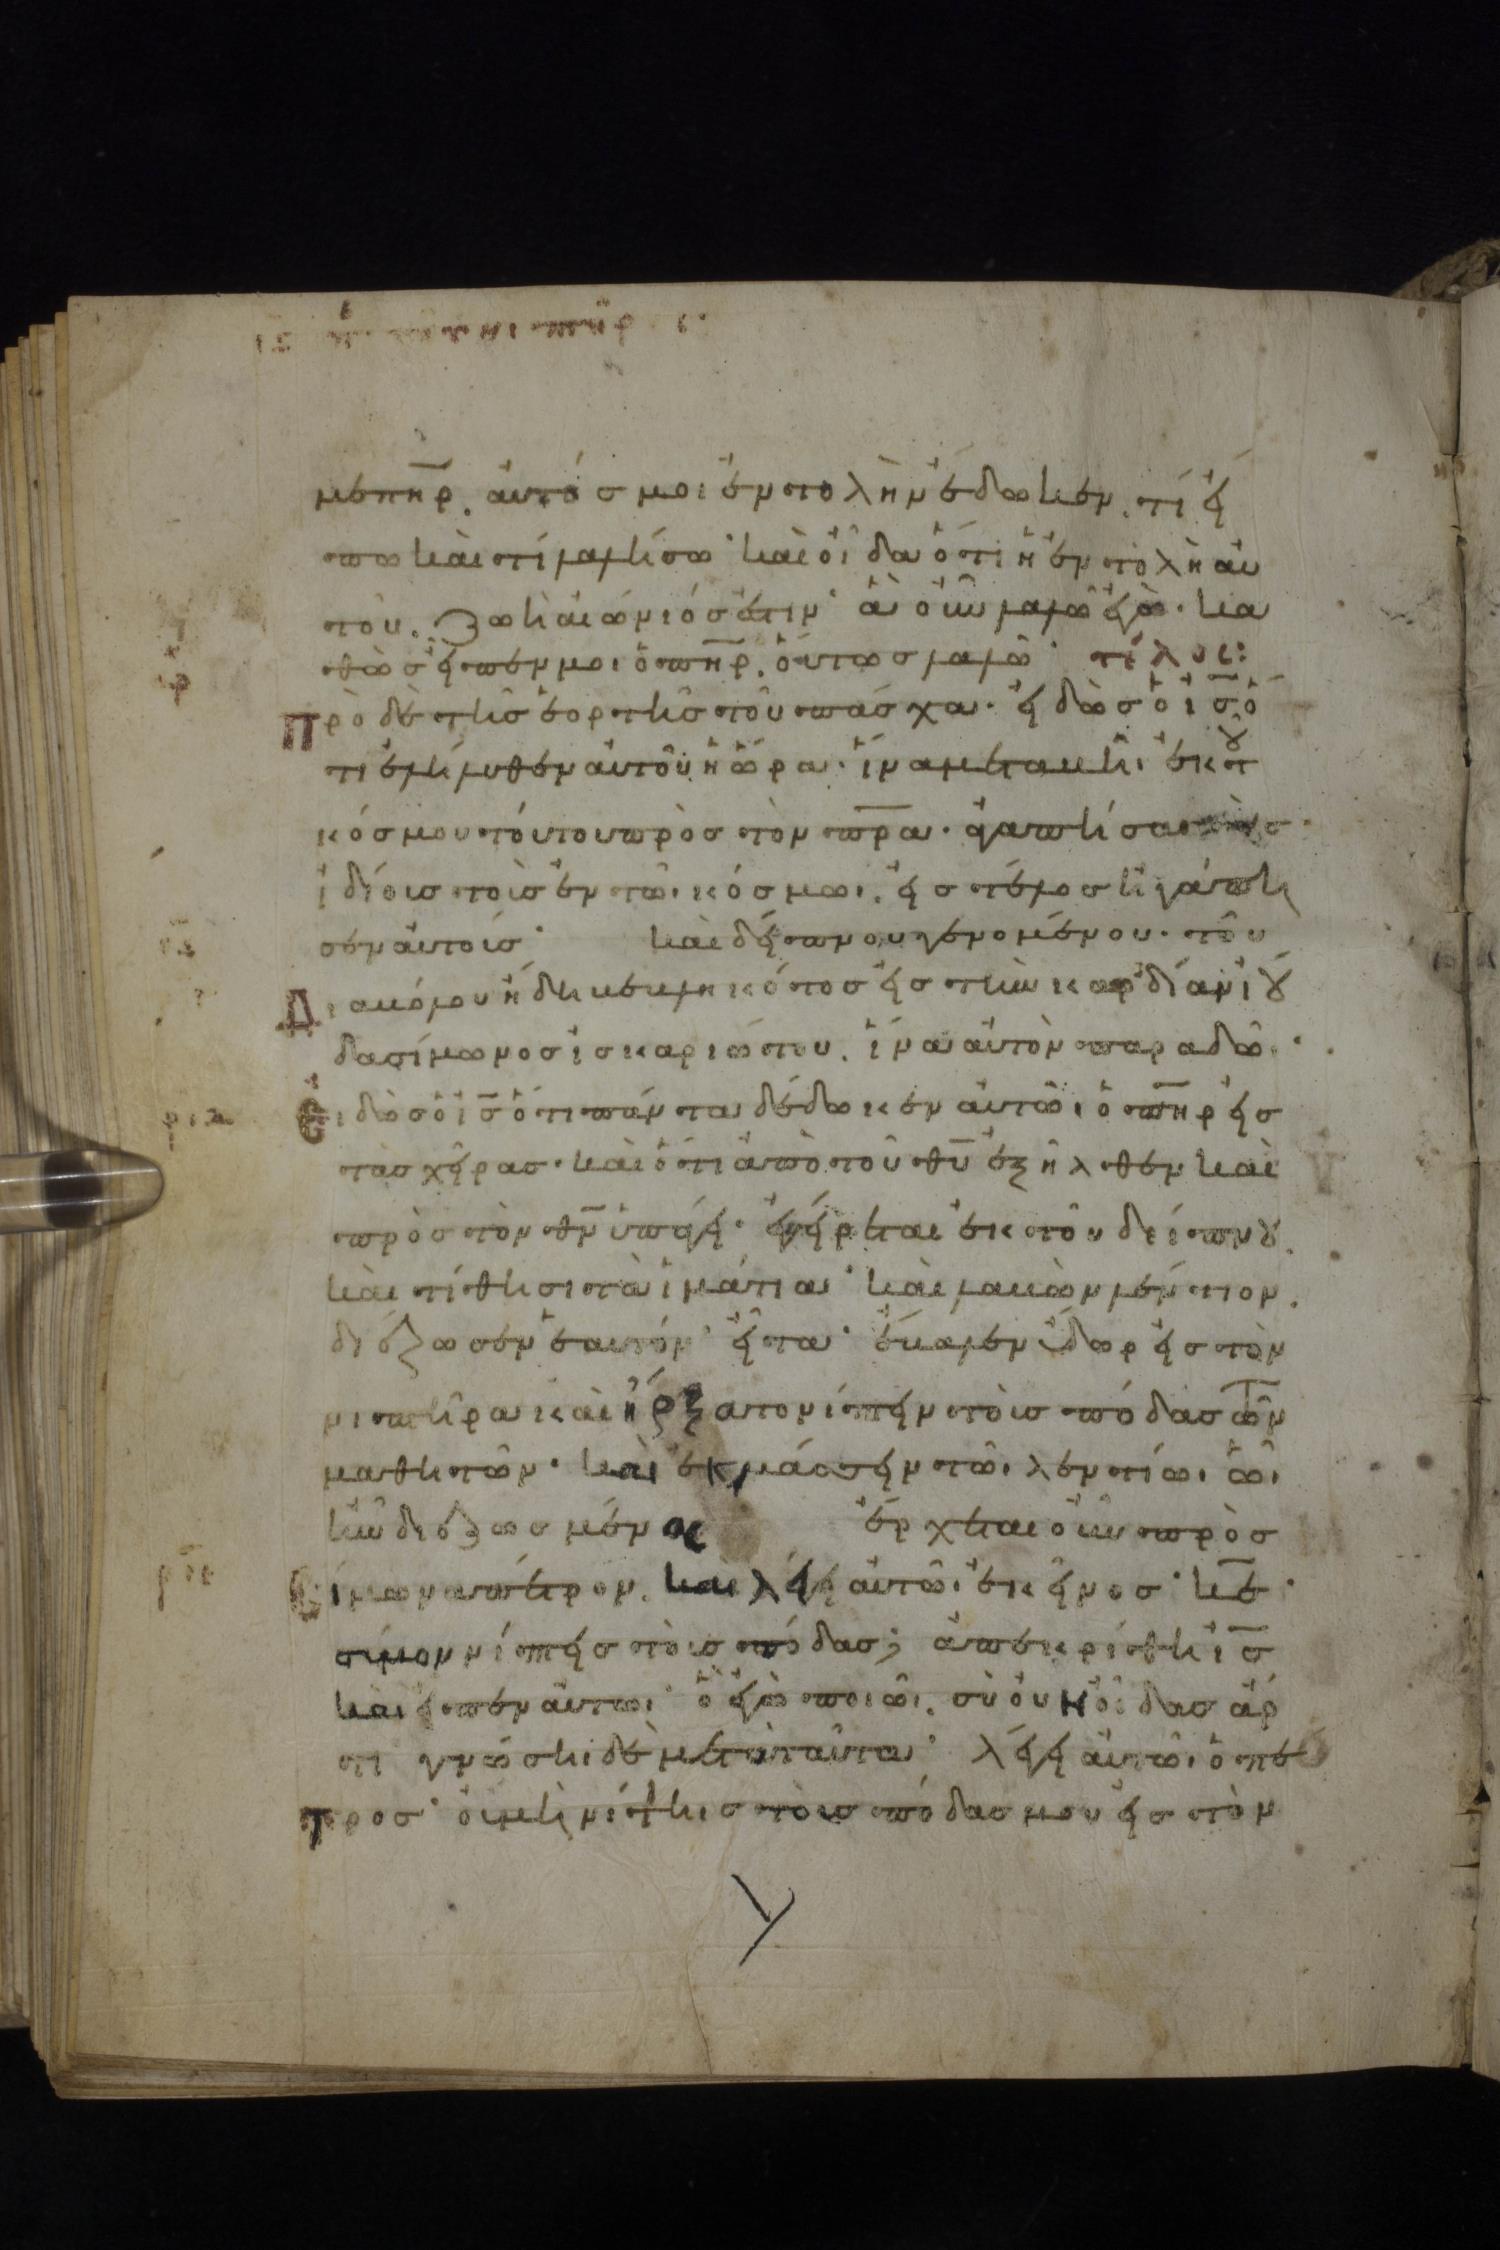 με πηρ. αὐτόσ μοι ἐντολὴν ἔδωκεν. τί εἴ
πω καὶ τί λαλήσω· καὶ οἶδα ὅτι ἡ ἐντολὴ αὐ
τοῦ. ζωὴ αἰώνιόσ ἐστιν· ἃ οὖν λαλῶ ἐγὼ· κα
θὼσ εἴπεν μοι ὁ πηρ. ὅυτωσ λαλῶ· τέλος:
Πρὸ δὲ τῆσ ἑορτῆσ τοῦ πάσχα· εἰδὼσ ὁ ισ ὅ
τι ἐλήλυθεν αὐτοῦ ἡ ὥρα· ἵνα μεταβῆ ἐκ τοῦ
κόσμου τούτου πρὸσ τὸν πρα· ἀγαπήσασ τοὺσ
ἰδίουσ τοὺσ ἐν τῶι κόσμωι. εἰσ τέλοσ ἠγάπη
σεν αὐτούσ· καὶ δείπνου γενομένου· τοῦ
Διαβόλου ἤδη βεβληκότοσ εἰσ τὴν καρδίαν ἰού
δα σίμωνοσ ἰσκαριώτου. ἵνα αὐτὸν παραδῶ·
Εἰδὼσ ὁ ισ ὅτι πάντα δέδωκεν αὐτῶι ὁ πηρ εἰσ
τὰσ χεῖρασ· καὶ ὅτι ἀπὸ τοῦ θυ ἐξῆλθεν καὶ
πρὸσ τὸν θν ὑπάγει· ἐγείρεται ἐκ τοῦ δείπνου.
καὶ τίθησι τὰ ἱμάτια· καὶ λαβὼν λέντιον.
διέζωσεν ἑαυτόν· εἶτα· ἔβαλεν ὕδωρ εἰσ τὸν
νιπτῆρα καὶ ἤρξατο νίπτειν τοὺσ πόδασ τῶν
μαθητῶν· καὶ ἐκμάσσειν τῶι λεντίωι ὧι
ἦν διεζωσμένος ἔρχεται οὖν πρὸσ
Σίμωνα πέτρον. καὶ λέγει αὐτῶι ἐκεῖνοσ· κε·
σύ μου νίπτεισ τοὺσ πόδασ; ἀπεκρίθη ισ
καὶ εἶπεν αὐτωι· ὃ ἐγὼ ποιῶ. σὺ οὐκ οἶδασ ἄρ
τι γνώση δὲ μετὰ ταῦτα· λέγει αὐτῶι ὁ πέ
τροσ· οὐ μὴ νίψηισ τοὺσ πόδασ μου εἰσ τὸν